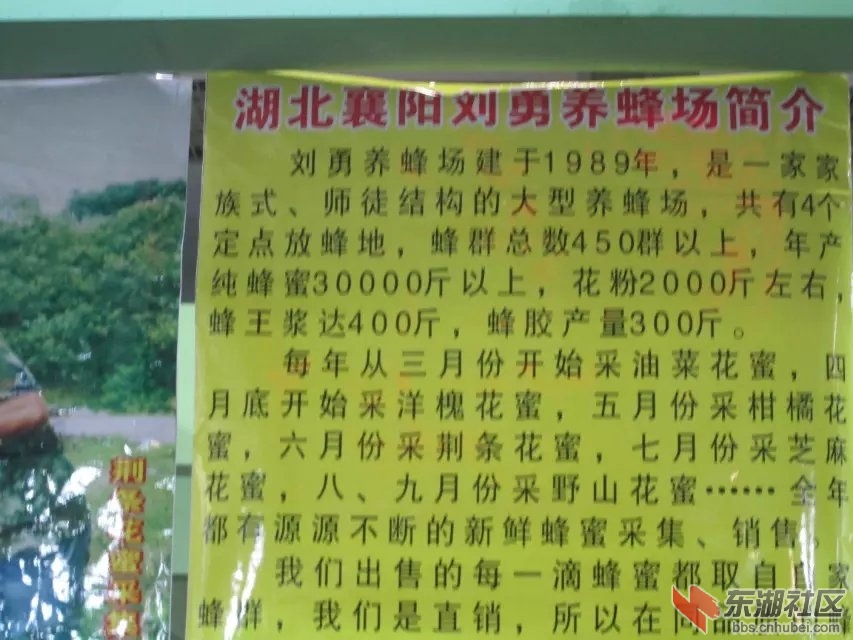 湖北襄阳刘勇养蜂场简介
刘勇养蜂场建于1989年，是一家家
族式、师徒结构的大型养蜂场，共有4个
定点放蜂地，蜂群总数450群以上，年产
纯蜂蜜30000斤以上，花粉2000斤左右，
蜂王浆达400斤，蜂胶产量300斤。
每年从三月份开始采油菜花蜜，四
月底开始采洋槐花蜜，五月份采柑橘花
蜜，六月份采荆条花蜜，七月份采芝麻
花蜜，八、九月份采野山花蜜……全年
都有源源不断的新鲜蜂蜜采集、销售。
我们出售的每一滴蜂蜜都取自自家
蜂群，我们是直销，所以在同
荆条花蜜采
东湖社区
bbs.cnhubei.com